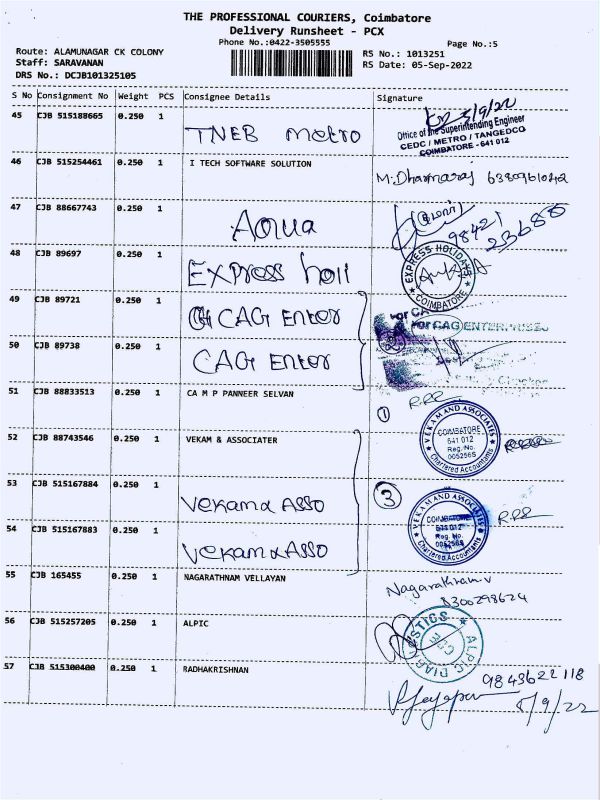 THE PROFESSIONAL COURIERS, Coimbatore
Delivery Runsheet - PCX
Phone No.:0422-3505555
Page No.:5
Route: ALAMUNAGAR CK COLONY
RS No.: 1013251
Staff: SARAVANAN
RS Date: 05-Sep-2022
DRS No.: DCJB101325105
S No Consignment No Weight PCS Consignee Details Signature
45 CJB 515188665 0.250 1 TNEB metro
5/9/22
Office of the Superintending Engineer
CEDC / METRO / TANGEDCO
COIMBATORE - 641 012
46 CJB 515254461 0.250 1 I TECH SOFTWARE SOLUTION
M. Dharmaraj 6380961042
47 CJB 88667743 0.250 1 Aqua
98421
23688
48 CJB 89697 0.250 1 EXPress holi
EXPRESS HOLIDAYS
COIMBATORE
49 CJB 89721 0.250 1 CAG Enter
For CAG ENTERPRISES
50 CJB 89738 0.250 1 CAG Enter
51 CJB 88833513 1 CA M P PANNEER SELVAN
1
RRR
VEKAM AND ASSOCIATES
COIMBATORE
641 012
Reg. No.
005256S
Chartered Accountants
52 CJB 88743546 0.250 1 VEKAM & ASSOCIATER
53 CJB 515167884 0.250 1 Vekam & ASSO
3
VEKAM AND ASSOCIATES
COIMBATORE
641 012
Reg. No.
005256S
Chartered Accountants
RRR
54 CJB 515167883 0.250 1 Vekam & ASSO
55 CJB 165455 0.250 1 NAGARATHNAM VELLAYAN
Nagarathnam V
8300298624
56 CJB 515257205 0.250 1 ALPIC
ALPIC DIAGNOSTICS
57 CJB 515300400 0.250 1 RADHAKRISHNAN
9843622118
5/9/22